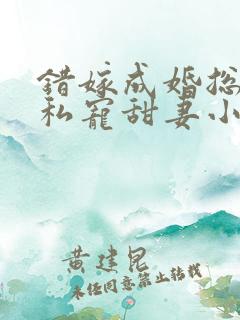 错嫁成婚总
私宠甜妻小
黄建昆
未经同意禁止转载